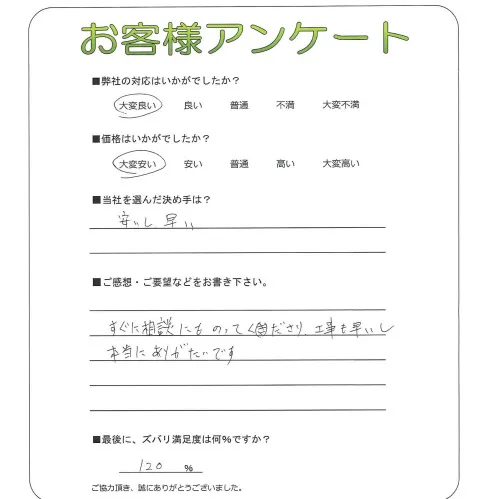 お客様アンケート
■弊社の対応はいかがでしたか?
大変良い 良い 普通 不満 大変不満
■価格はいかがでしたか?
大変安い 安い 普通 高い 大変高い
■当社を選んだ決め手は?
安いし、早い
■ご感想・ご要望などをお書き下さい。
すぐに相談にものってくださり、工事も早いし
本当にありがたいです
■最後に、ズバリ満足度は何%ですか?
120 %
ご協力頂き、誠にありがとうございました。